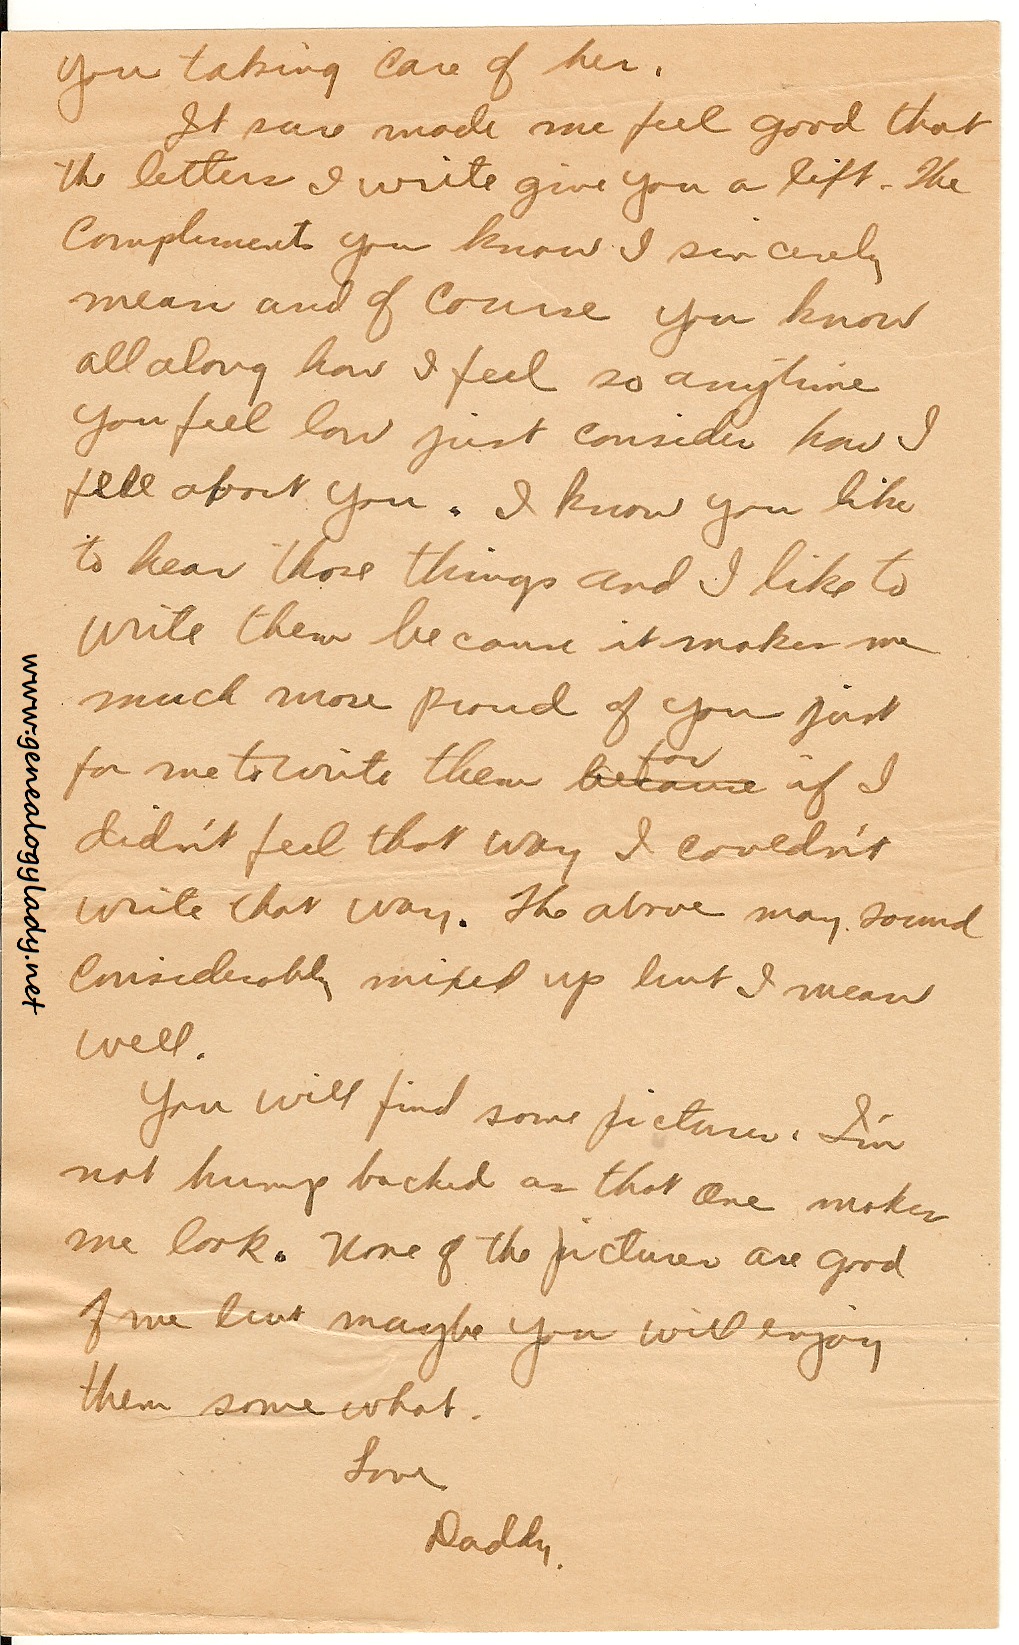 you taking care of her.
It sure made me feel good that
the letters I write give you a lift. The
compliments you know I sincerely
mean and of course you know
all along how I feel so anytime
you feel low just consider how I
feel about you. I know you like
to hear those things and I like to
write them because it makes me
much more proud of you just
for me to write them because for if I
didn't feel that way I couldn't
write that way. The above may sound
considerably mixed up but I mean
well.
You will find some pictures. I'm
not hump backed as that one makes
me look. None of the pictures are good
of me but maybe you will enjoy
them some what.
Love
Daddy.
www.genealogylady.net